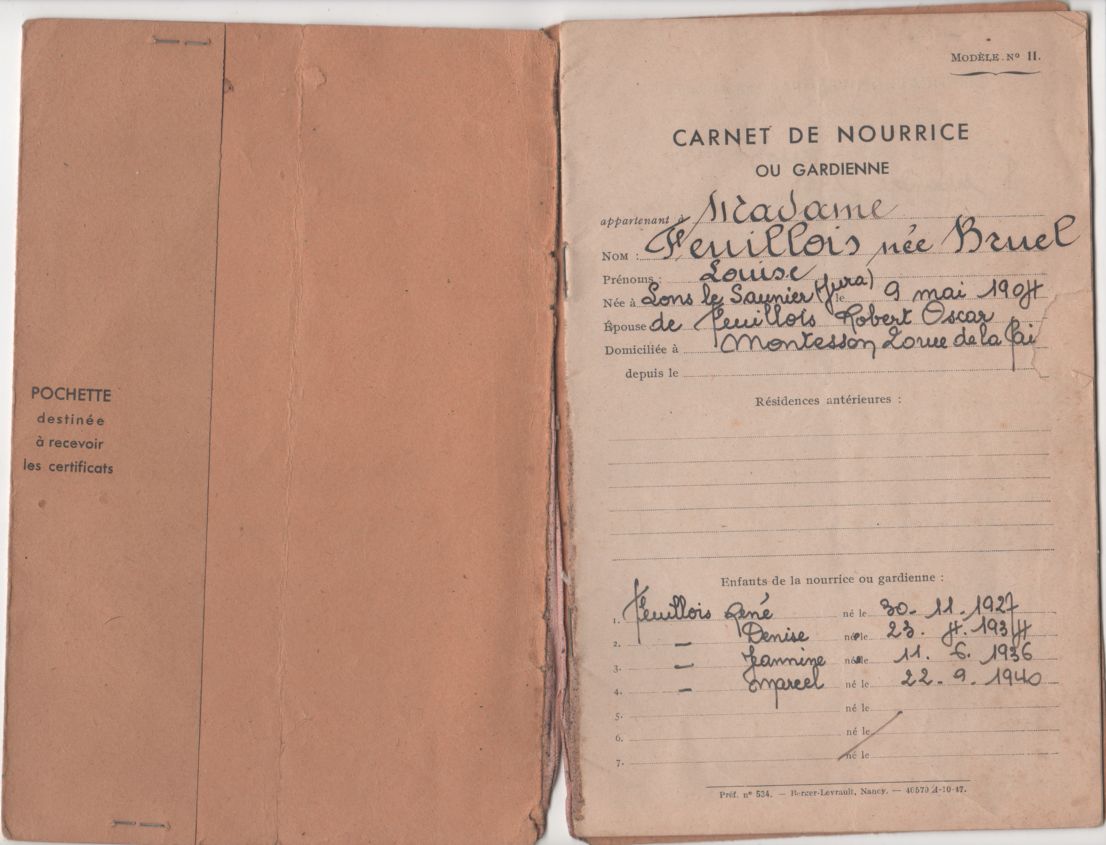 POCHETTE
destinée
à recevoir
les certificats
MODÈLE Nº 11.
CARNET DE NOURRICE
OU GARDIENNE
appartenant à Madame
NOM : Feuillois née Bruel
Prénoms : Louise
Née à Lons le Saunier (Jura) le 9 mai 1904
Épouse de Feuillois Robert Oscar
Domiciliée à Montesson rue de la
depuis le
Résidences antérieures :
Enfants de la nourrice ou gardienne :
1. Feuillois René né le 30-11-1927
2. — Denise née le 23.4.1934
3. — Jeannine née le 11.6.1936
4. — Marcel né le 22-9.1940
5. né le
6. né le
7. né le
Préf. nº 534. — Berger-Levrault, Nancy. — 46570 A-10-47.